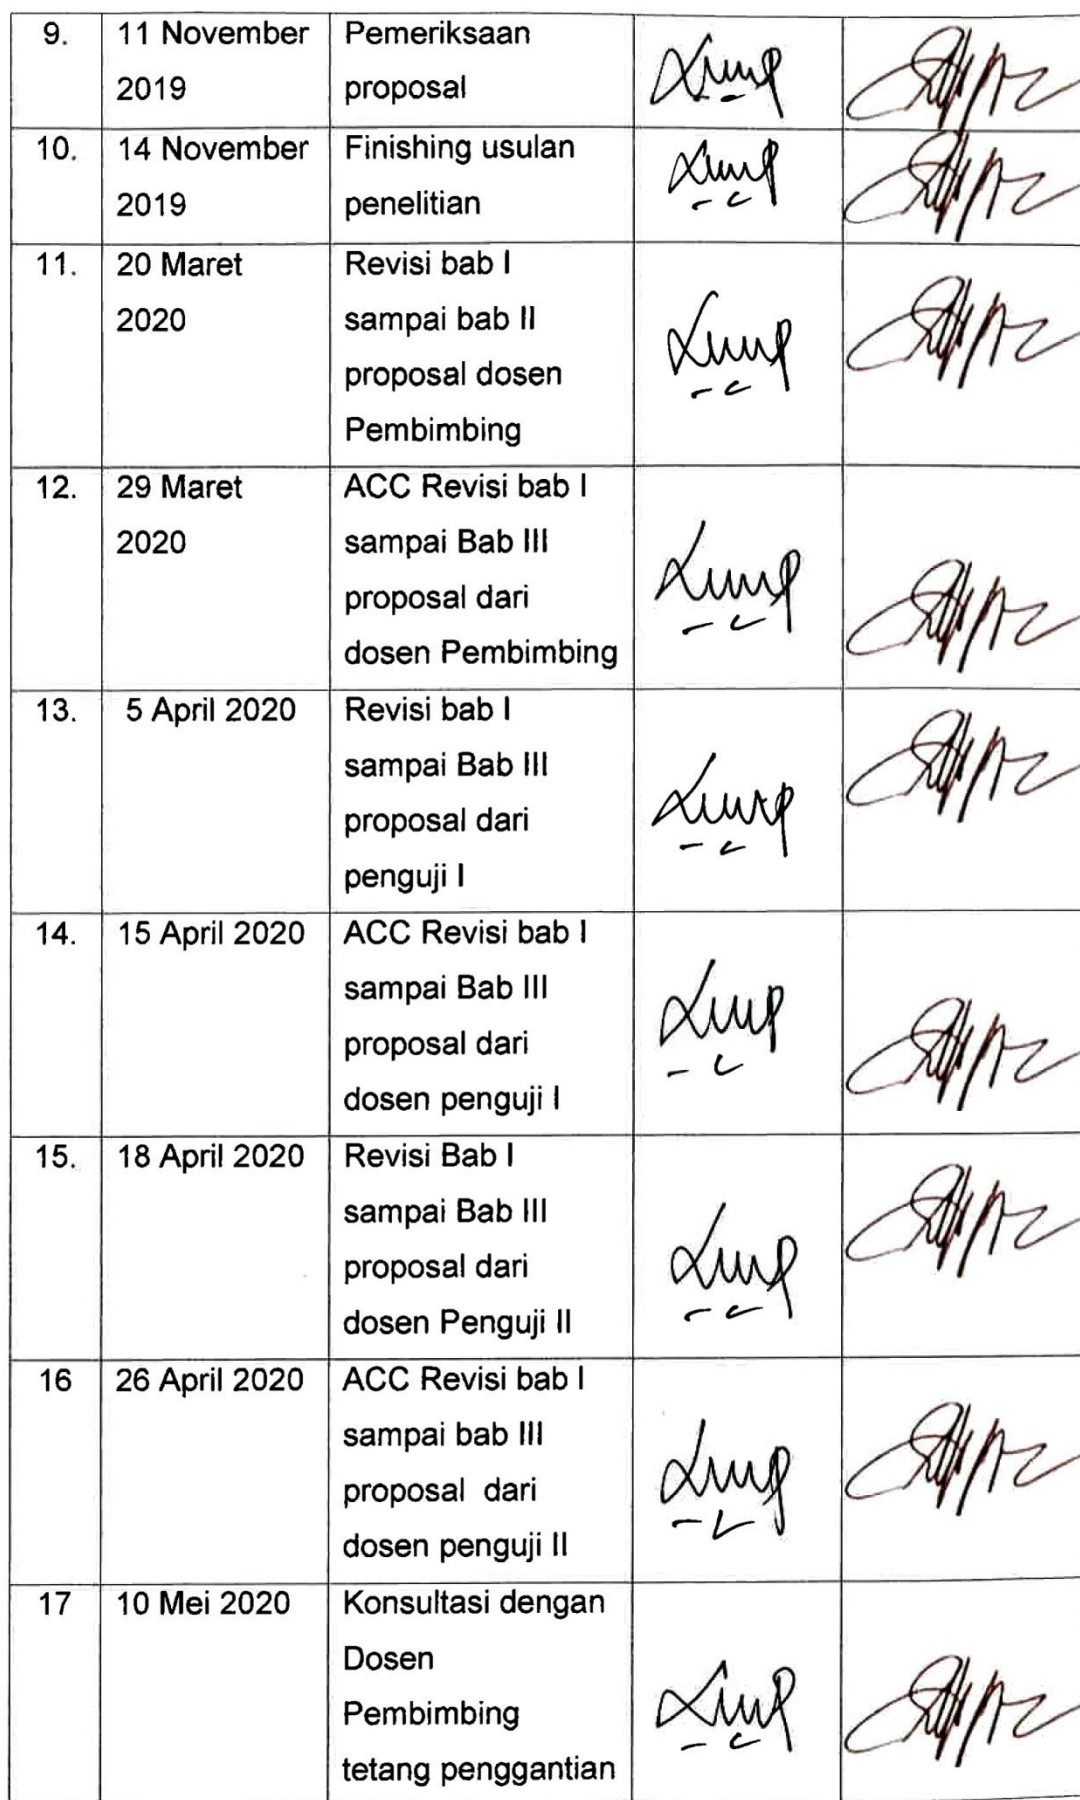 9. 11 November Pemeriksaan
2019 proposal
10. 14 November Finishing usulan
2019 penelitian
11. 20 Maret Revisi bab I
2020 sampai bab II
proposal dosen
Pembimbing
12. 29 Maret ACC Revisi bab I
2020 sampai Bab III
proposal dari
dosen Pembimbing
13. 5 April 2020 Revisi bab I
sampai Bab III
proposal dari
penguji I
14. 15 April 2020 ACC Revisi bab I
sampai Bab III
proposal dari
dosen penguji I
15. 18 April 2020 Revisi Bab I
sampai Bab III
proposal dari
dosen Penguji II
16 26 April 2020 ACC Revisi bab I
sampai bab III
proposal dari
dosen penguji II
17 10 Mei 2020 Konsultasi dengan
Dosen
Pembimbing
tetang penggantian